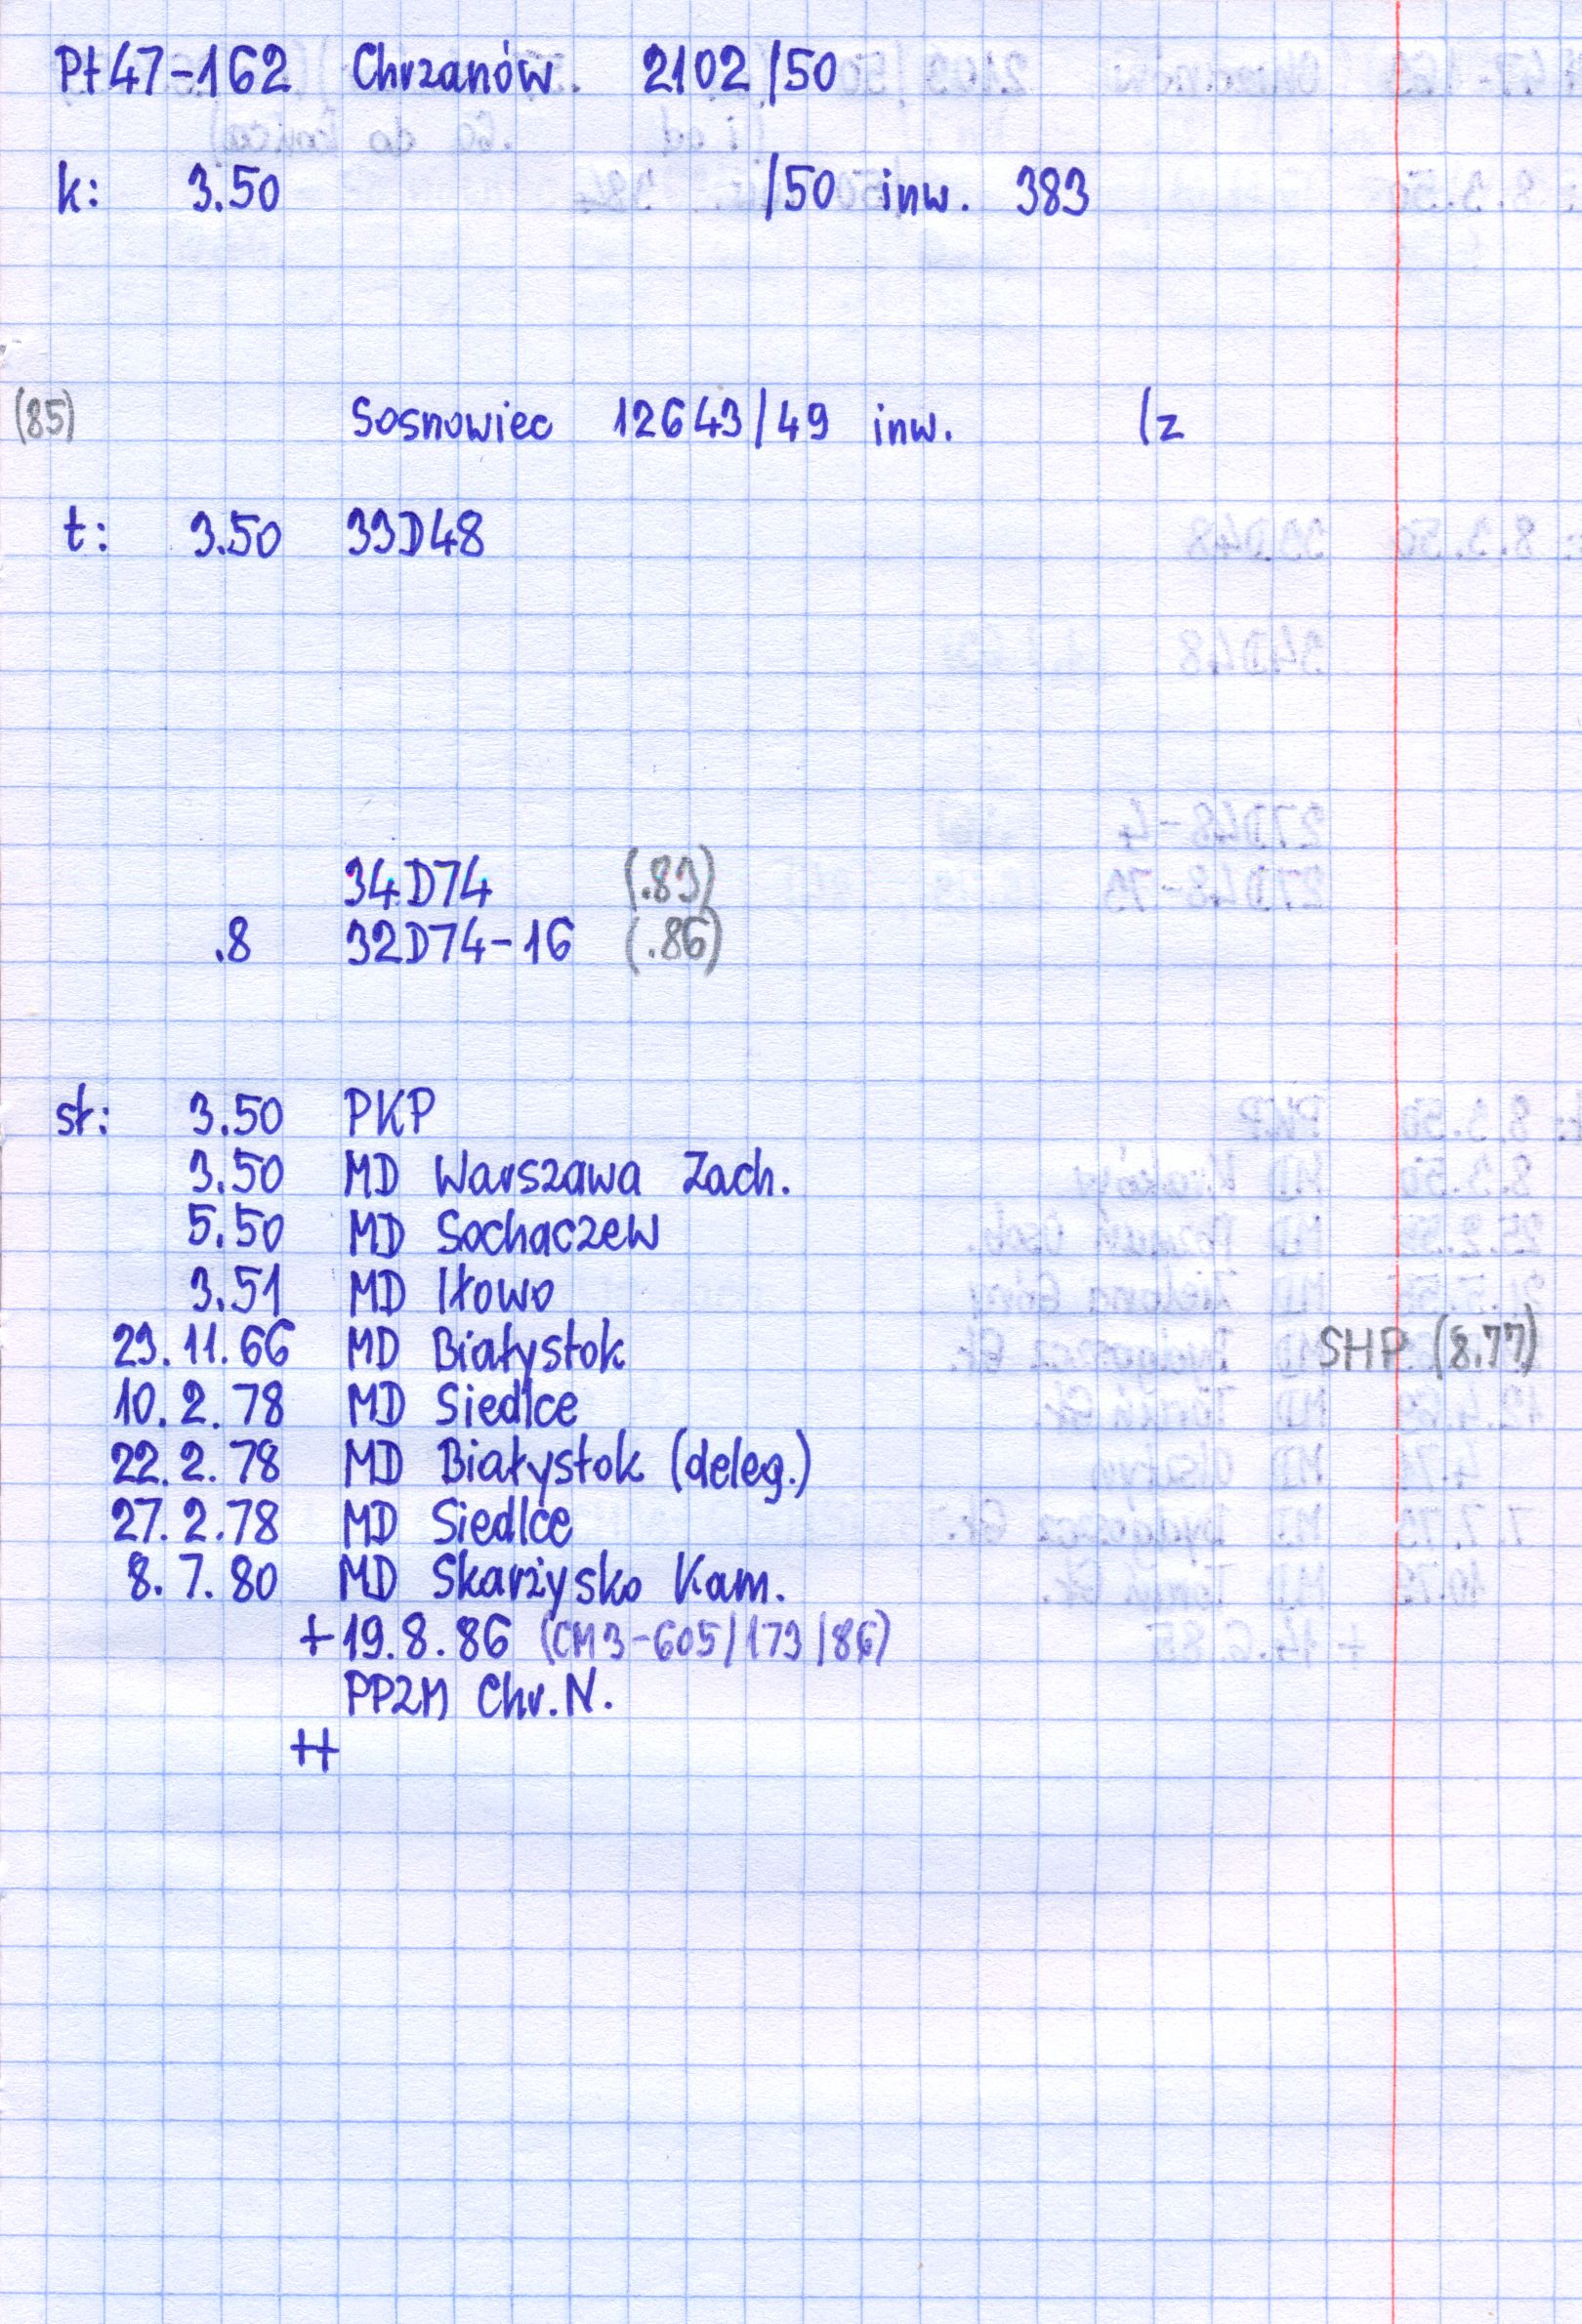 Pt47-162 Chrzanów 2102/50
k: 3.50 /50 inw. 383
(85) Sosnowiec 12643/49 inw. (z
t: 3.50 33D48
34D74 (.83)
.8 32D74-16 (.86)
st: 3.50 PKP
3.50 MD Warszawa Zach.
5.50 MD Sochaczew
3.51 MD Iłowo
29.11.66 MD Białystok SHP (8.77)
10.2.78 MD Siedlce
22.2.78 MD Białystok (deleg.)
27.2.78 MD Siedlce
8.7.80 MD Skarżysko Kam.
+19.8.86 (CM3-605/173/86)
PPZM Chr.N.
++